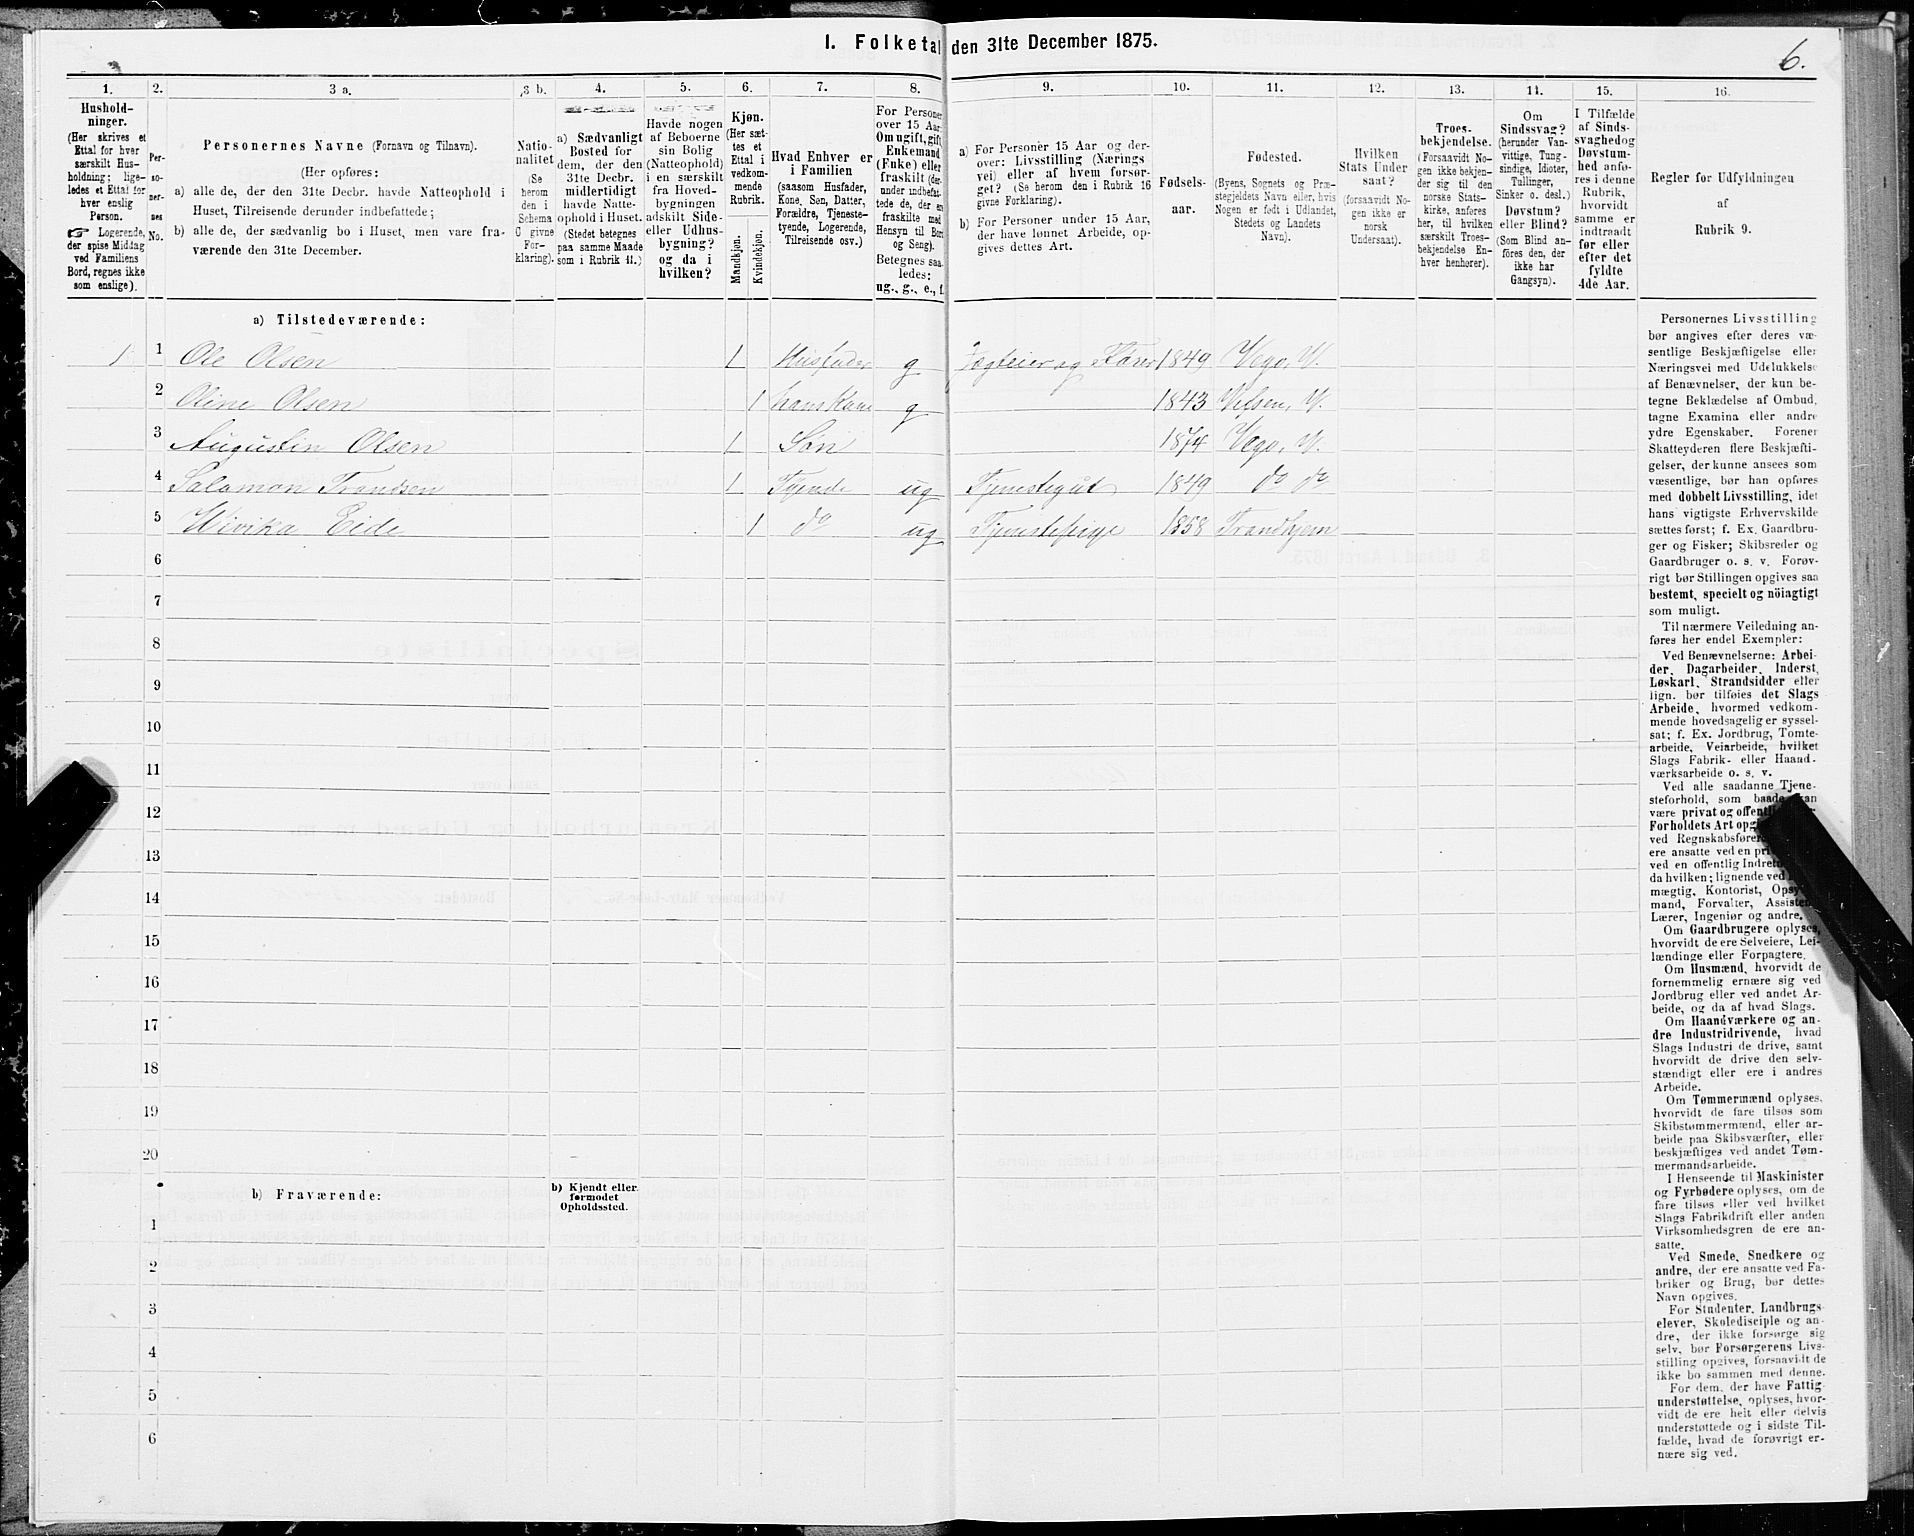 I. Folketal den 31te December 1875.
6.
1.
Hushold-
ninger.
(Her skrives et
Ettal for hver
særskilt Hus-
holdning; lige-
ledes et Ettal for
hver enslig
Person.
☞ Logerende,
der spise Middag
ved Familiens
Bord, regnes ikke
som enslige).
2.
Per-
so-
ner-
nes
No.
3 a.
Personernes Navne (Fornavn og Tilnavn).
(Her opføres:
a) alle de, der den 31te Decbr. havde Natteophold i
Huset, Tilreisende derunder indbefattede;
b) alle de, der sædvanlig bo i Huset, men vare fra-
værende den 31te December.
3 b.
Natio-
nalitet
(Se
herom
den i
Schema
C givne
For-
klaring).
4.
a) Sædvanligt
Bosted for
dem, der den
31te Decbr.
midlertidigt
havde Natte-
ophold i Huset.
(Stedet betegnes
paa samme Maade
som i Rubrik 11.)
5.
Havde nogen
af Beboerne
sin Bolig
(Natteophold)
i en særskilt
fra Hoved-
bygningen
adskilt Side-
eller Udhus-
bygning?
og da i
hvilken?
6.
Kjøn.
(Her sæt-
tes et
Ettal i
vedkom-
mende
Rubrik.
Mandkjøn.
Kvindekjøn.
7.
Hvad Enhver er
i Familien
(saasom Husfader,
Kone, Søn, Datter,
Forældre, Tjeneste-
tyende, Logerende,
Tilreisende osv.)
8.
For Personer
over 15 Aar:
Om ugift, gift,
Enkemand
(Enke) eller
fraskilt (der-
under indbefat-
tede de, der ere
fraskilte med
Hensyn til Bord
og Seng).
Betegnes saa-
ledes:
ug., g., e., f.
9.
a) For Personer 15 Aar og der-
over: Livsstilling (Nærings
vei) eller af hvem forsør-
get? (Se herom den i Rubrik 16
givne Forklaring).
b) For Personer under 15 Aar,
der have lønnet Arbeide, op-
gives dettes Art.
10.
Fødsels-
aar.
11.
Fødested.
(Byens, Sognets og Præ-
stegjeldets Navn eller, hvis
Nogen er født i Udlandet,
Stedets og Landets
Navn).
12.
Hvilken
Stats Under
saat?
(forsaavidt No-
gen ikke er
norsk
Undersaat).
13.
Troes-
bekjendelse.
(Forsaavidt No-
gen ikke bekjen-
der sig til den
norske Stats-
kirke, anføres
her, til hvilken
særskilt Troes-
bekjendelse En-
hver henhører).
14.
Om
Sindssvag?
(herunder Van-
vittige, Tung-
sindige, Idioter,
Tullinger,
Sinker o. desl.)
Døvstum?
eller Blind?
(Som Blind an-
føres den, der
ikke har
Gangsyn).
15.
I Tilfælde
af Sinds-
svaghed og
Døvstum-
hed anfø-
res i denne
Rubrik,
hvorvidt
samme er
indtraadt
før eller
efter det
fyldte
4de Aar.
16.
Regler for Udfyldningen
af
Rubrik 9.
a) Tilstedeværende:
1 1 Ole Olsen 1 Husfader g Jægteier og Fører 1849 Vego, V.
2 Oline Olsen 1 hans Kone g 1843 Vefsen, V.
3 Augustin Olsen 1 Søn 1874 Vego, V.
4 Salamon Trondsen 1 Tyende ug Tjenestegut 1849 do do
5 Wivika Eide 1 do ug Tjenestepige 1858 Trondhjem
6
7
8
9
10
11
12
13
14
15
16
17
18
19
20
b) Fraværende:
b) Kjendt eller
formodet
Opholdssted.
1
2
3
4
5
6
Personernes Livsstilling
bør angives efter deres væ-
sentlige Beskjæftigelse eller
Næringsvei med Udelukkelse
af Benævnelser, der kun be-
tegne Beklædelse af Ombud,
tagne Examina eller andre
ydre Egenskaber. Forener
Skatteyderen flere Beskjæfti-
gelser, der kunne ansees som
væsentlige, bør han opføres
med dobbelt Livsstilling, idet
hans vigtigste Erhvervskilde
sættes først; f. Ex. Gaardbru-
ger og Fisker; Skibsreder og
Gaardbruger o. s. v. Forøv-
rigt bør Stillingen opgives saa
bestemt, specielt og nöiagtigt
som muligt.
Til nærmere Veiledning an-
føres her endel Exempler:
Ved Benævnelserne: Arbei-
der, Dagarbeider, Inderst,
Løskarl, Strandsidder eller
lign. bør tilføies det Slags
Arbeide, hvormed vedkom-
mende hovedsagelig er syssel-
sat; f. Ex. Jordbrug, Tomte-
arbeide, Veiarbeide, hvilket
Slags Fabrik- eller Haand-
værksarbeide o. s. v.
Ved alle saadanne Tjene-
steforhold, som baade kan
være privat og offentligt
Forholdets Art
ved Regnskabsfører
ere ansatte ved en
ved en offentlig
da hvilken; lignende ved
mægtig, Kontorist,
mand, Forvalter,
Lærer, Ingeniør og andre.
Om Gaardbrugere oplyses,
hvorvidt de ere Selveiere, Lei-
lændinge eller Forpagtere.
Om Husmænd, hvorvidt de
fornemmelig ernære sig ved
Jordbrug eller ved andet Ar-
beide, og da af hvad Slags.
Om Haandværkere og an-
dre Industridrivende, hvad
Slags Industri de drive, samt
hvorvidt de drive den selv-
stændigt eller ere i andres
Arbeide.
Om Tømmermænd oplyses,
hvorvidt de fare tilsøs som
Skibstømmermænd, eller ar-
beide paa Skibsværfter, eller
beskjæftiges ved andet Tøm-
mermandsarbeide.
I Henseende til Maskinister
og Fyrbødere oplyses, om de
fare tilsøs eller ved hvilket
Slags Fabrikdrift eller anden
Virksomhedsgren de ere an-
satte.
Ved Smede, Snedkere og
andre, der ere ansatte ved Fa-
briker og Brug, bør dettes
Navn opgives.
For Studenter, Landbrugs-
elever, Skoledisciple og an-
dre, der ikke forsørge sig
selv, bør Forsørgerens Livs-
stilling opgives, forsaavidt de
ikke bo sammen med denne.
For dem, der have Fattig-
understøttelse, oplyses, hvor-
vidt de ere helt eller delvis
understøttede og i sidste Til-
fælde, hvad de forøvrigt er-
nære sig ved.